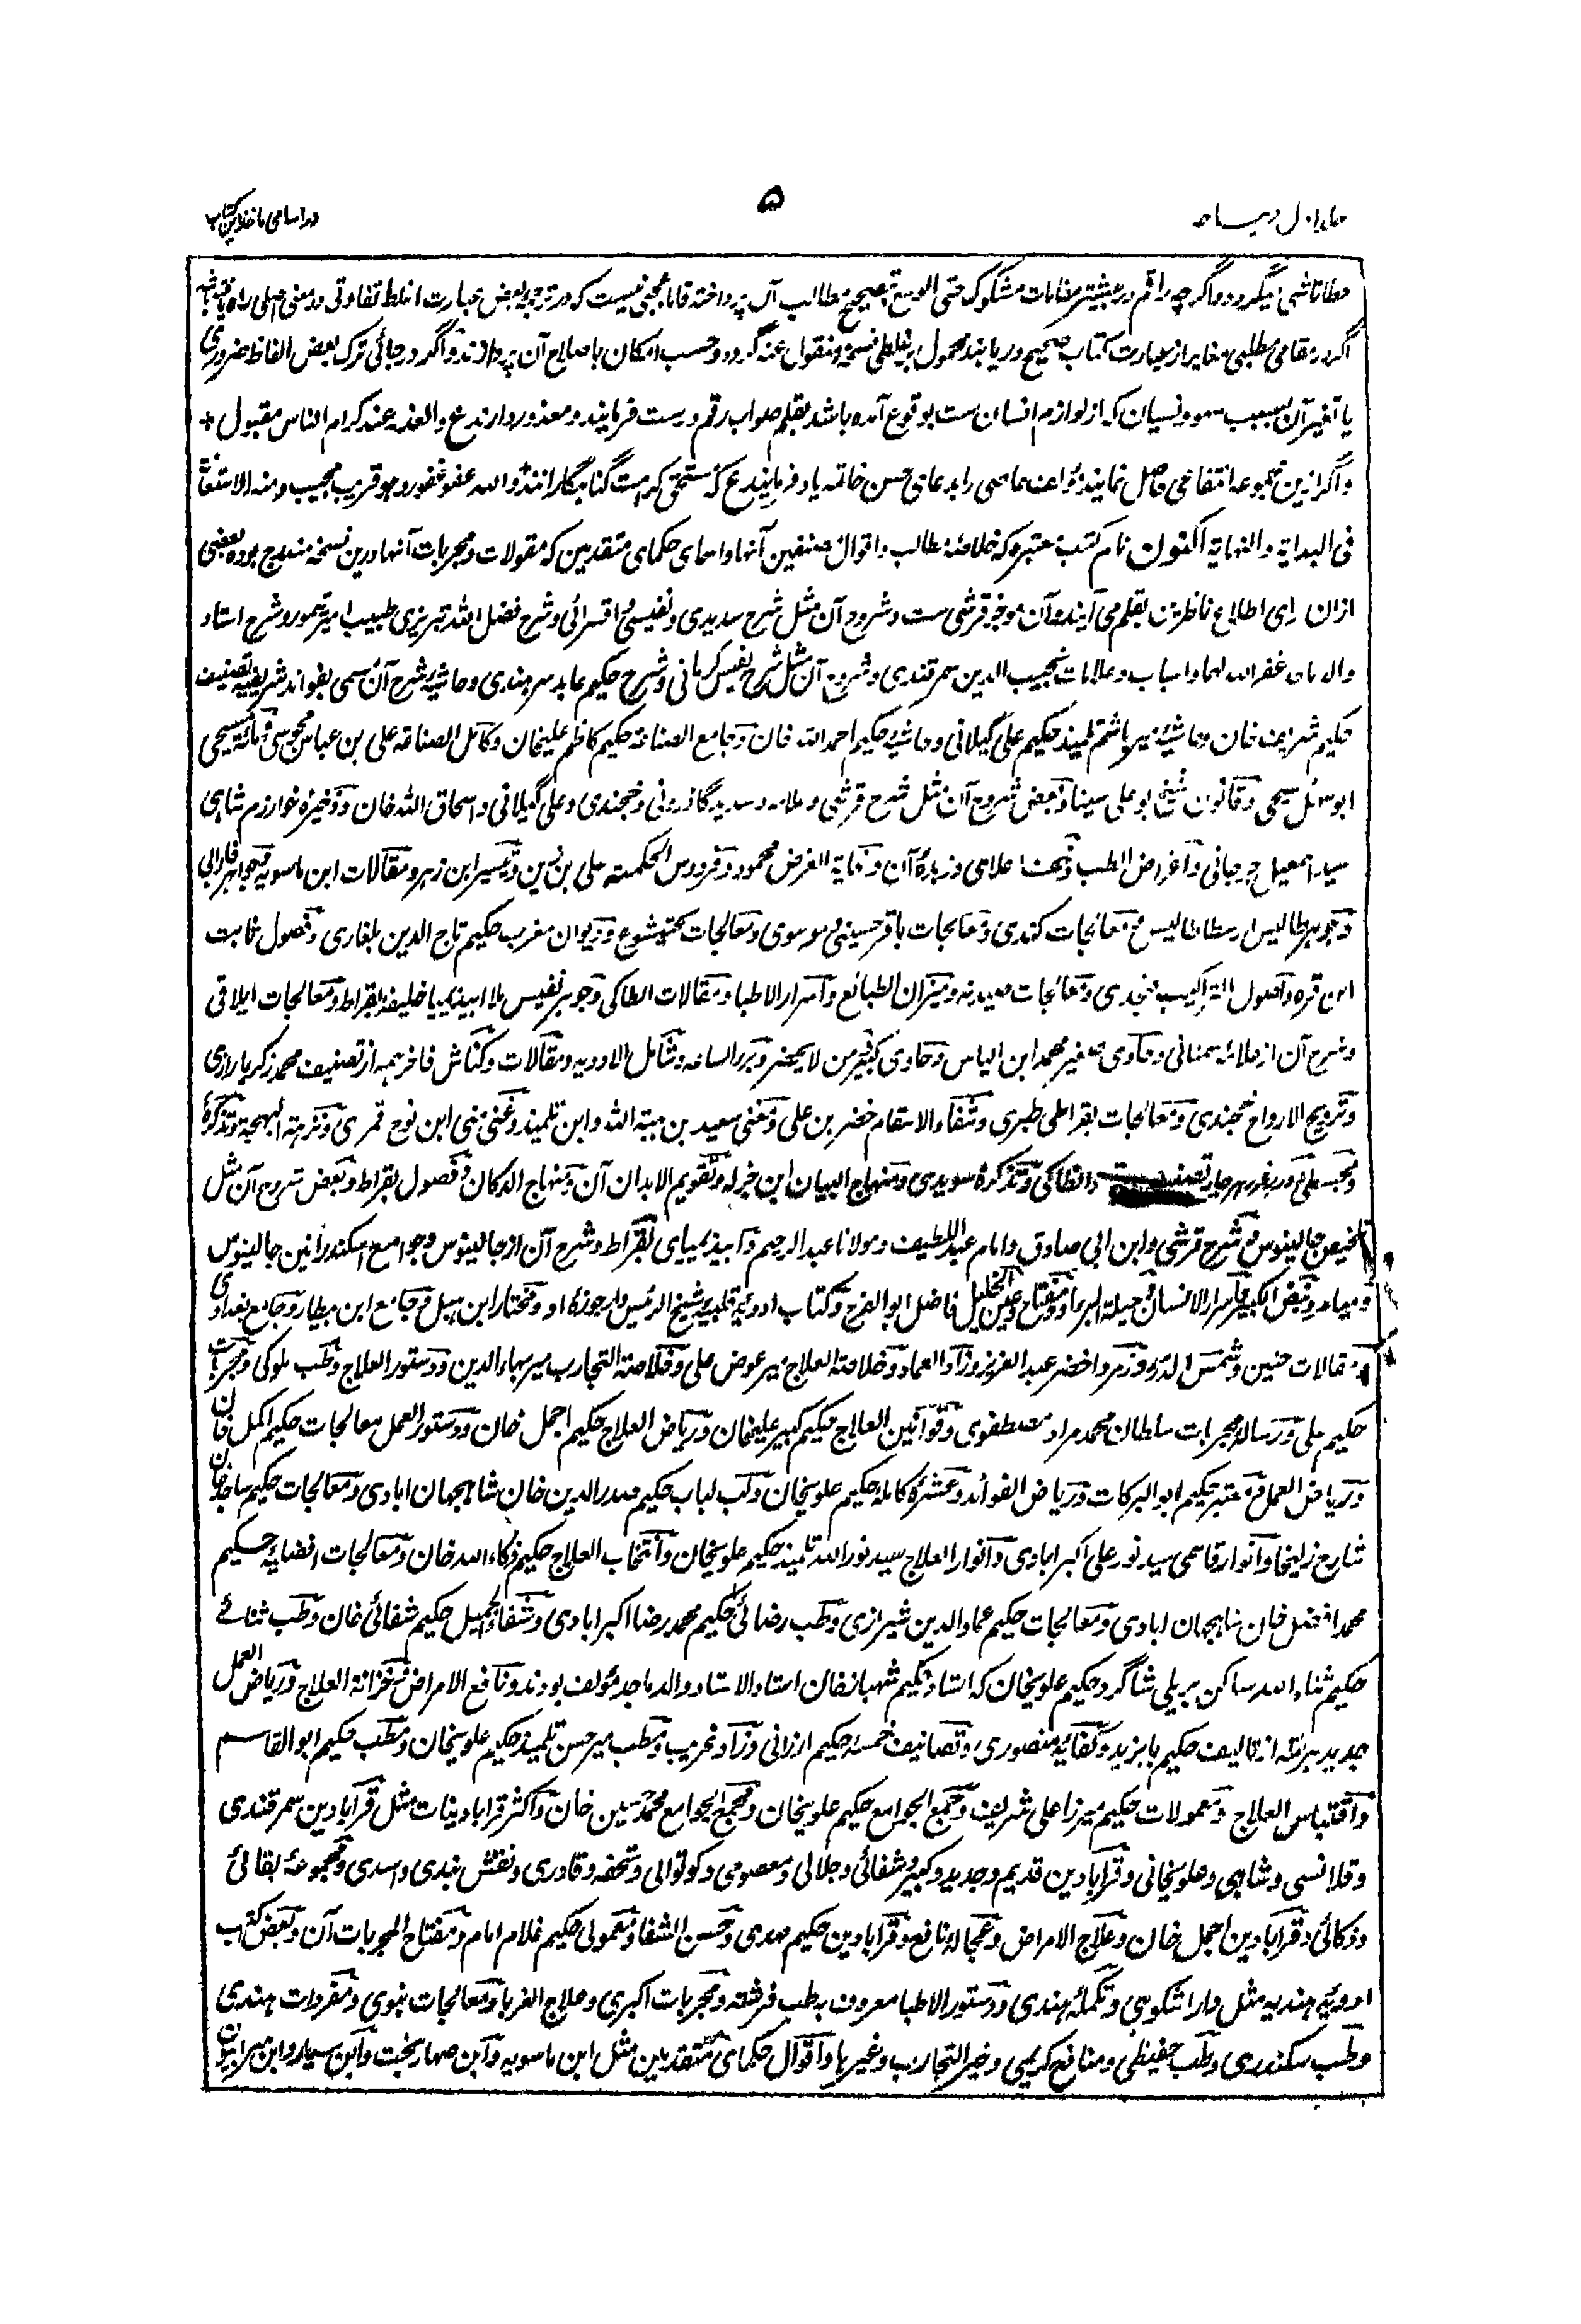 جلد اول دیباچه
۵
در اسامی ماخذ این کتاب
خطا ناشی میگردد و اگرچه راقم در بیشتر مقامات مشکوک حتی الوسع بتصحیح مطالب آن پرداخته فاما عجبی نیست که در ترجمه بعض عبارت اغلط تفاوتی در معنی اصلی راه یافته باشد
اگر در مقامی مطلبی مغایر از عبارت کتاب صحیح دریابند محمول بر غلطی نسخه منقول عنه گردد و حسب امکان باصلاح آن پردازند و اگر در جائی ترک بعض الفاظ ضروری
یا تغیر آن بسبب سهو و نسیان که از لوازم انسان ست بوقوع آمده باشد بقلم صواب رقم درست فرمایند و معذور دارند ع والعذر عند کرام الناس مقبول +
و اگر ازین مجموعه انتفاعی حاصل نمایند واعف عاصی را بدعای حسن خاتمه یاد فرمایند ع که مستحق کرامت گناهگارانند والله عفو غفور وهو قریب مجیب ومنه الاستعانة
فی البدایة والنهایة اکنون نام کتب معتبره که خلاصه مطالب و اقوال مصنفین آنها و اسمای حکمای متقدمین که مقولات و مجربات آنها درین نسخه مندرج بوده بعضی
ازان برای اطلاع ناظرین بقلم می آیند و آن موجز قرشی ست و شروح آن مثل شرح سدیدی و نفیسی و اقسرائی و شرح فضل الله تبریزی طبیب امیر تیمور و شرح استاد
والدمان غفر الله لهما و اسباب و علامات نجیب الدین سمرقندی و شروح آن مثل شرح نفیس کرمانی و شرح حکیم عابد سرهندی و حاشیه شرح آن مسمی بفوائد شریفیه تصنیف
حکیم شریف خان و حاشیه میر هاشم تلمیذ حکیم علی گیلانی و حاشیه حکیم احمد الله خان و جامع الصناعة حکیم کاظم علیخان و کامل الصناعه علی بن عباس مجوسی و مائة مسیحی
ابو سهل مسیحی و قانون شیخ بو علی سینا و بعض شروح آن مثل شرح قرشی و علامه و سدید گازرونی و خجندی و علی گیلانی و اسحاق الله خان و ذخیره خوارزم شاهی
سید اسمعیل جرجانی و اغراض الطب و خف علامی و زبده آن و غایة الغرض محمود و فردوس الحکمته علی بن زین و تیسیر ابن زهر و مقالات ابن ماسویه و جواهر فارابی
و جوهر طالیس ارسطاطالیس و معالجات کندی و معالجات باقر حسینی و موسوی و معالجات بختیشوع و دیوان مغرب حکیم تاج الدین بلغاری و فصول ثابت
ابن قره و اصول التراکیب خجندی و معالجات سعیدیه و میزان الطبائع و اسرار الاطبا و مقالات انطاکی و جوهر نفیس بلا ابیذیمیا خلیفه بقراط و معالجات ایلاقی
و شرح آن از علائه سمنانی و حاوی صغیر محمد ابن الیاس و حاوی کبیر من لایحضر و برء الساعه و شامل الادویه و مقالات و کناش فاخر همه از تصنیف محمد زکریا رازی
و ترویح الارواح خجندی و معالجات بقراطی طبری و شفاء الاسقام خضر بن علی و مغنی سعید بن هبة الله و ابن تلمیذ و غنی منی ابن نوح قمری و نزهته البهجة و تذکرهٔ
انطاکی و تذکرهٔ سویدی و منهاج البیان ابن جزله و تقویم الابدان آن و منهاج الدکان و فصول بقراط و بعض شروح آن مثل
تلخیص جالینوس و شرح قرشی و ابن ابی صادق و امام عبد اللطیف و مولانا عبد الرحیم و ابیذیمیای بقراط و شرح آن از جالینوس و جوامع اسکندرانین جالینوس
و میامر و نبض الکبیر و اسرار الانسان و حیلة البرء و مفتاح و عین الخلیل فاضل ابو الفرج و کتاب ادویه قلبیه شیخ الرئیس و ارجوزه او و مختار ابن هبل و جامع ابن بیطار و جامع بغدادی
و مقالات حنین و شمس الدر و زمرد اخضر عبد العزیز و زاد العماد و خلاصته العلاج میر عوض علی و خلاصته التجارب میر بهاء الدین و دستور العلاج و طب ملوکی و مجربات
حکیم علی و رساله مجربات سلطان محمد مراد مصطفوی و قوانین العلاج حکیم کبیر علیخان و ریاض العلاج حکیم اجمل خان و دستور العمل معالجات حکیم اکمل خان
و ریاض العمل و معتبر حکیم ابو البرکات و ریاض الفوائد و عشره کامله حکیم علویخان و لب لباب حکیم صدر الدین خان شاهجهان ابادی و معالجات حکیم ساجد خان
شارح زلیخا و انوار قاسمی سید نور علی اکبر ابادی و انوار العلاج سید نور الله تلمیذ حکیم علویخان و انتخاب العلاج حکیم ذکاء الله خان و معالجات افضلیه حکیم
محمد افضل خان شاهجهان ابادی و معالجات حکیم عماد الدین شیرازی و طب رضائی حکیم محمد رضا اکبر ابادی و شفاء الجمیل حکیم شفائی خان و طب ثنائے
حکیم ثناء الله ساکن بریلی شاگرد حکیم علویخان که استاد حکیم شهباز خان استاد الاستاد والد ماجد مؤلف بودند و نافع الامراض و خزانة العلاج و ریاض العمل
جدید هر سه از تالیف حکیم بایزید و کفایه منصوری و تصانیف خمسه حکیم ارزانی و زاد غریب و مطب میر حسن تلمیذ حکیم علویخان و مطب حکیم ابو القاسم
و اقتباس العلاج و معمولات حکیم میرزا علی شریف و جمع الجوامع حکیم علویخان و مجمع الجوامع محمد حسین خان و اکثر قرابادینات مثل قرابادین سمرقندی
و قلانسی و شاهی و علویخانی و قرابادین قدیم و جدید و کبیر و شفائی و جلالی و معصومی و کوتوالی و تحفه و قادری و نقش بندی و اسدی و مجموعه بقائی
و ذکائی و قرابادین اجمل خان و علاج الامراض و عجاله نافع و قرابادین حکیم مهدی و حسن الشفا و معمولی حکیم غلام امام و مفتاح المجربات آن و بعض کتب
ادویه هندیه مثل دارا شکوهی و تکمله هندی و دستور الاطبا معروف به طب فرشته و مجربات اکبری و علاج الغربا و معالجات نبوی و مفردات هندی
و طب سکندری و طب حفیظی و منافع کریمی و خیر التجارب و غیرها و اقوال حکمای متقدمین مثل ابن ماسویه و ابن صهار بخت و ابن سیار و ابن سرابیون